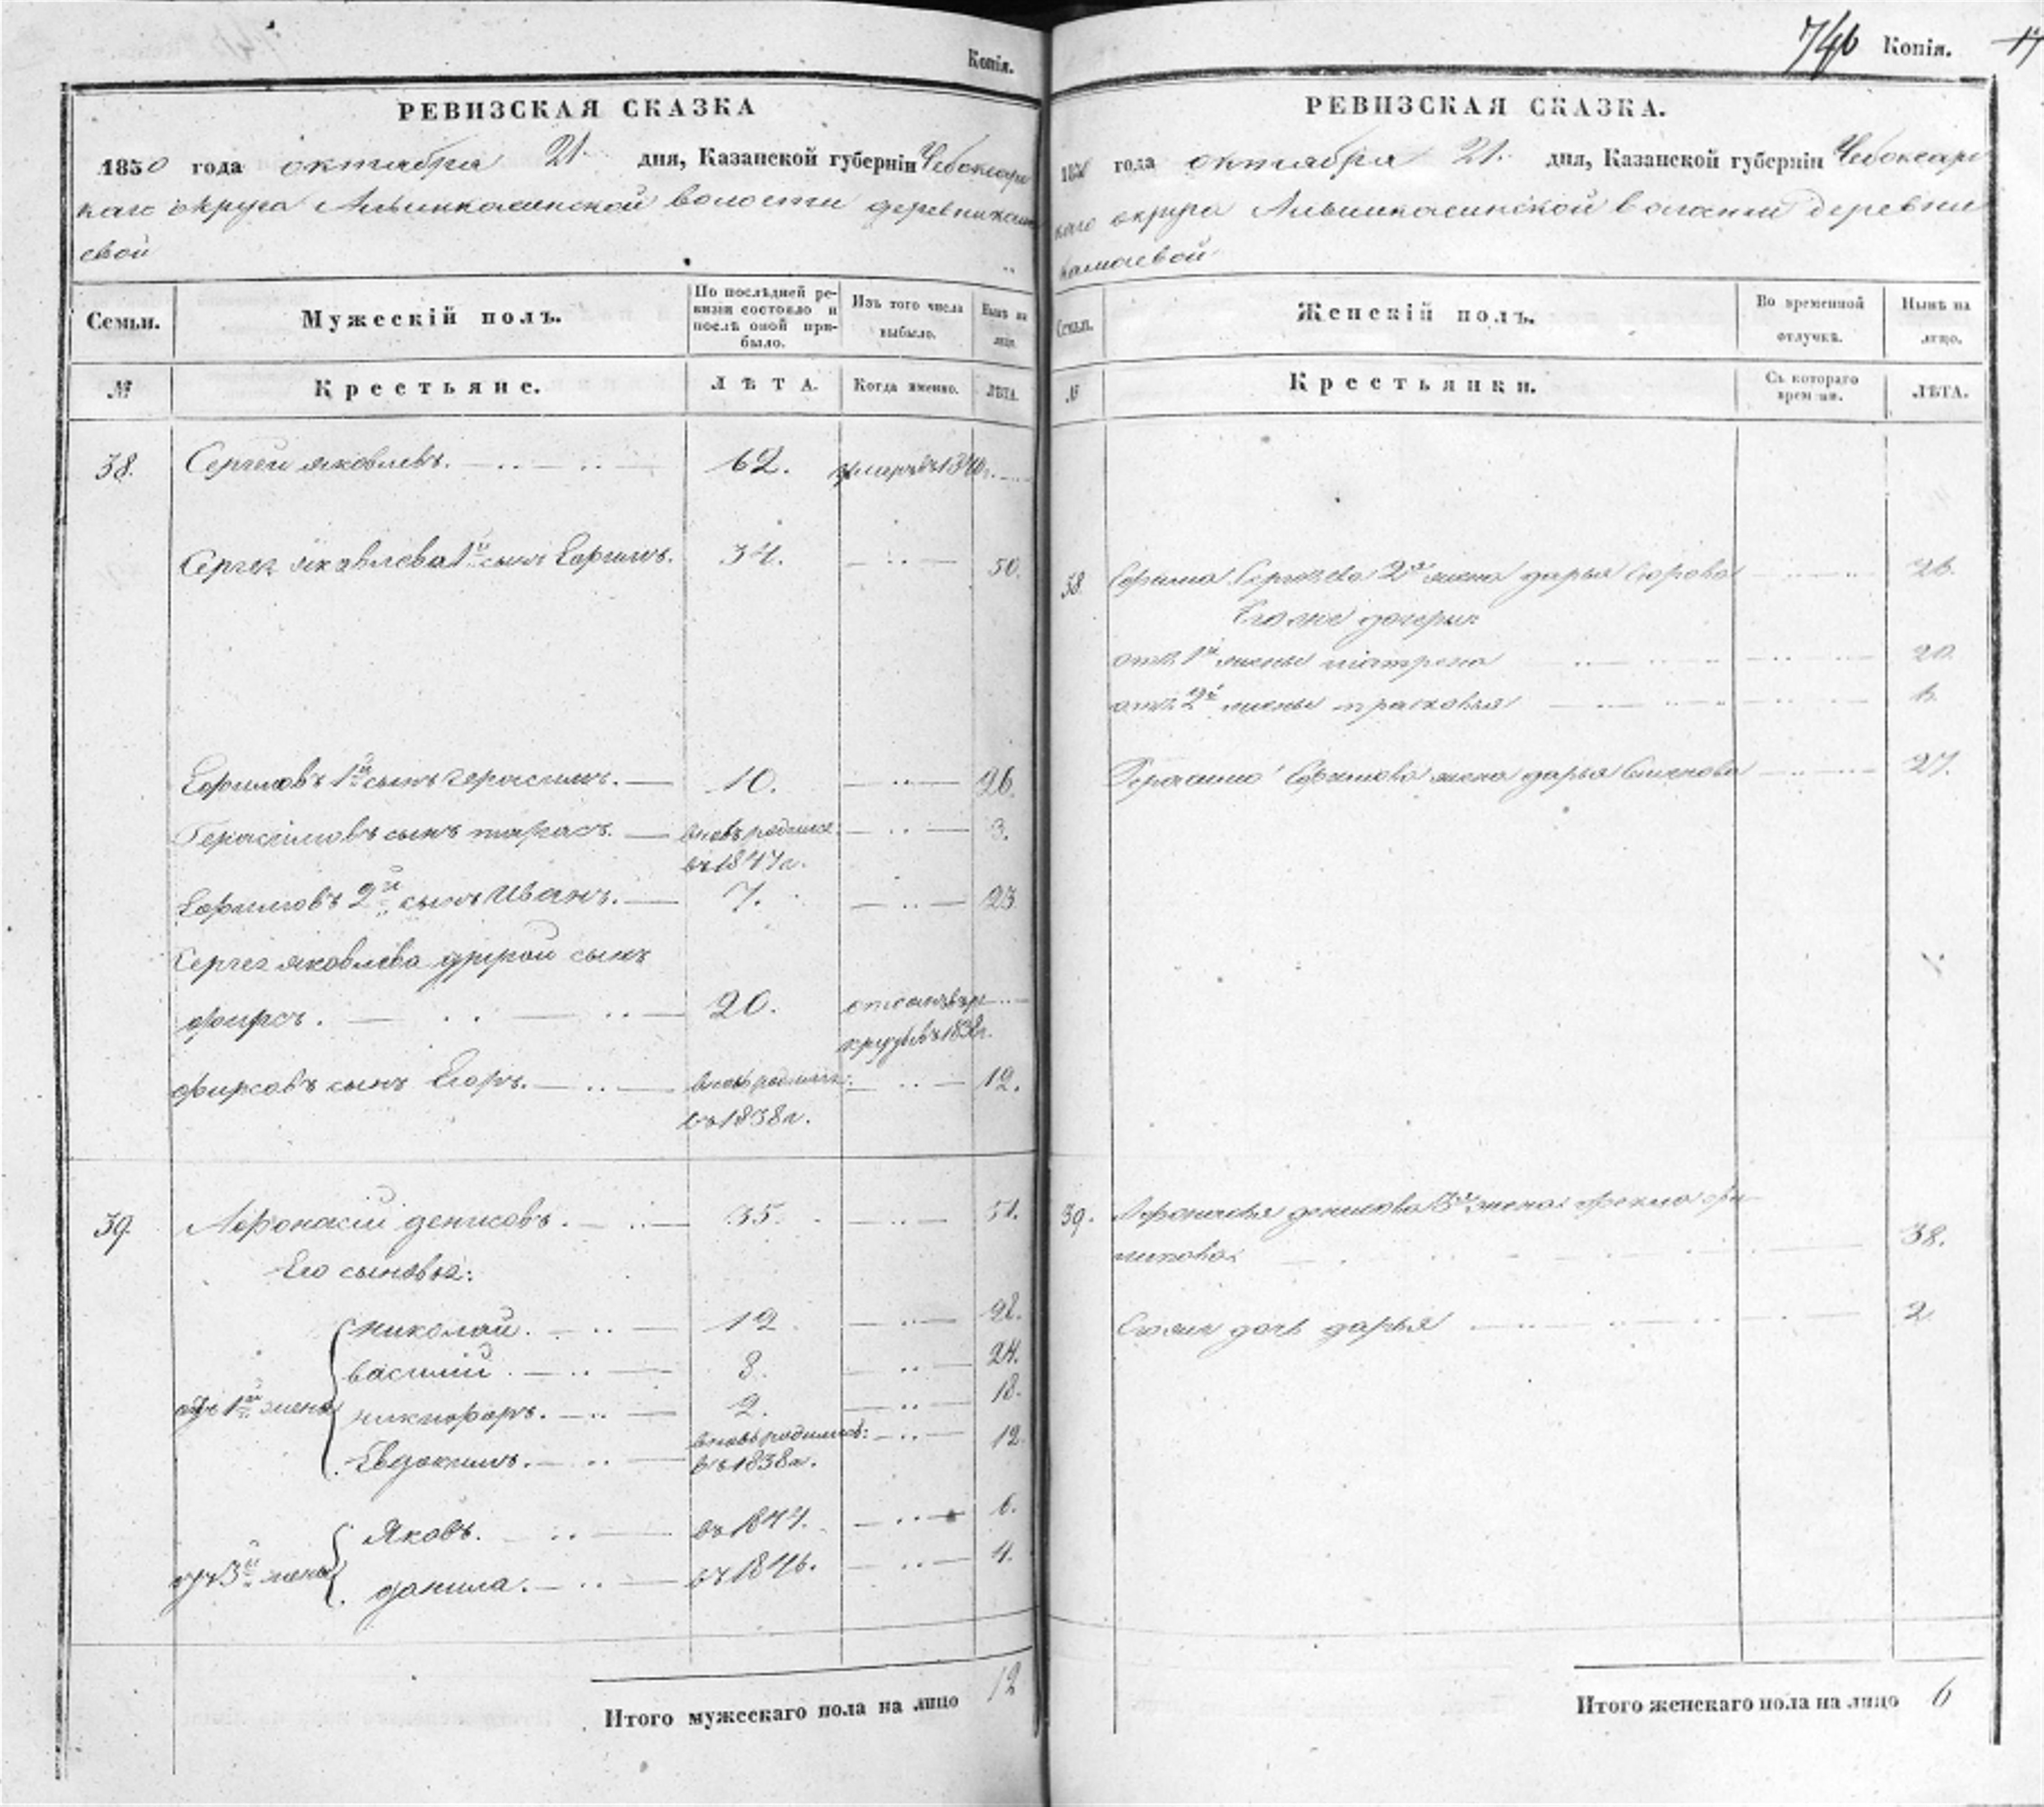 Копія.
РЕВИЗСКАЯ СКАЗКА
1850 года октабря 21 дня, Казанской губерніи Чебоксарс
каго округа Алымкасинской волости деревни
свой
Семьи. Мужескій полъ. По послѣдней ре-
визіи состояло и
послѣ оной при-
было. Изъ того числа
выбыло. Нынѣ на
лицо.
№ Крестьяне. ЛѢТА. Когда именно. ЛѢТА.
38. Сергей яковлевъ. 62. умеръ въ 1840г.
Сергея яковлева 1й сынъ Ефимъ. 34. 50.
Ефимовъ 1й сынъ герасимъ. 10. 26.
Герасимовъ сынъ тарасъ. вновь родился 3.
въ 1847г.
Ефимовъ 2й сынъ Иванъ. 7. 23
Сергея яковлева другой сынъ
фирсъ. 20.
въ 1838г.
фирсовъ сынъ Егоръ. вновь родился: 12.
въ 1838г.
39. Афонасій денисовъ. 35. 51.
Его сыновья:
николай. 12 28.
василій. 8. 24.
отъ 1й жены никифоръ. 2. 18.
Евдокимъ. вновь родился: 12
въ 1838г.
Яковъ. въ 1844. 6.
отъ 3й жены данила. въ 1846. 4.
Итого мужескаго пола на лицо 12
746 Копія. 17
РЕВИЗСКАЯ СКАЗКА.
1850 года октября 21. дня, Казанской губерніи Чебоксарс
каго округа Алымкасинской волости деревни
Семьи. Женскій полъ. Во временной
отлучкѣ. Нынѣ на
лицо.
№ Крестьянки. Съ котораго
времени. ЛѢТА.
38. Ефима Сергеева 2я жена дарья 26.
Его же дочери:
отъ 1й жены матрена 20.
отъ 2й жены прасковья
Герасима Ефимова жена дарья Семенова 27.
39. Афонасья денисова 3я жена: фекла фи-
липова: 38.
дочь дарья 2
Итого женскаго пола на лицо 6